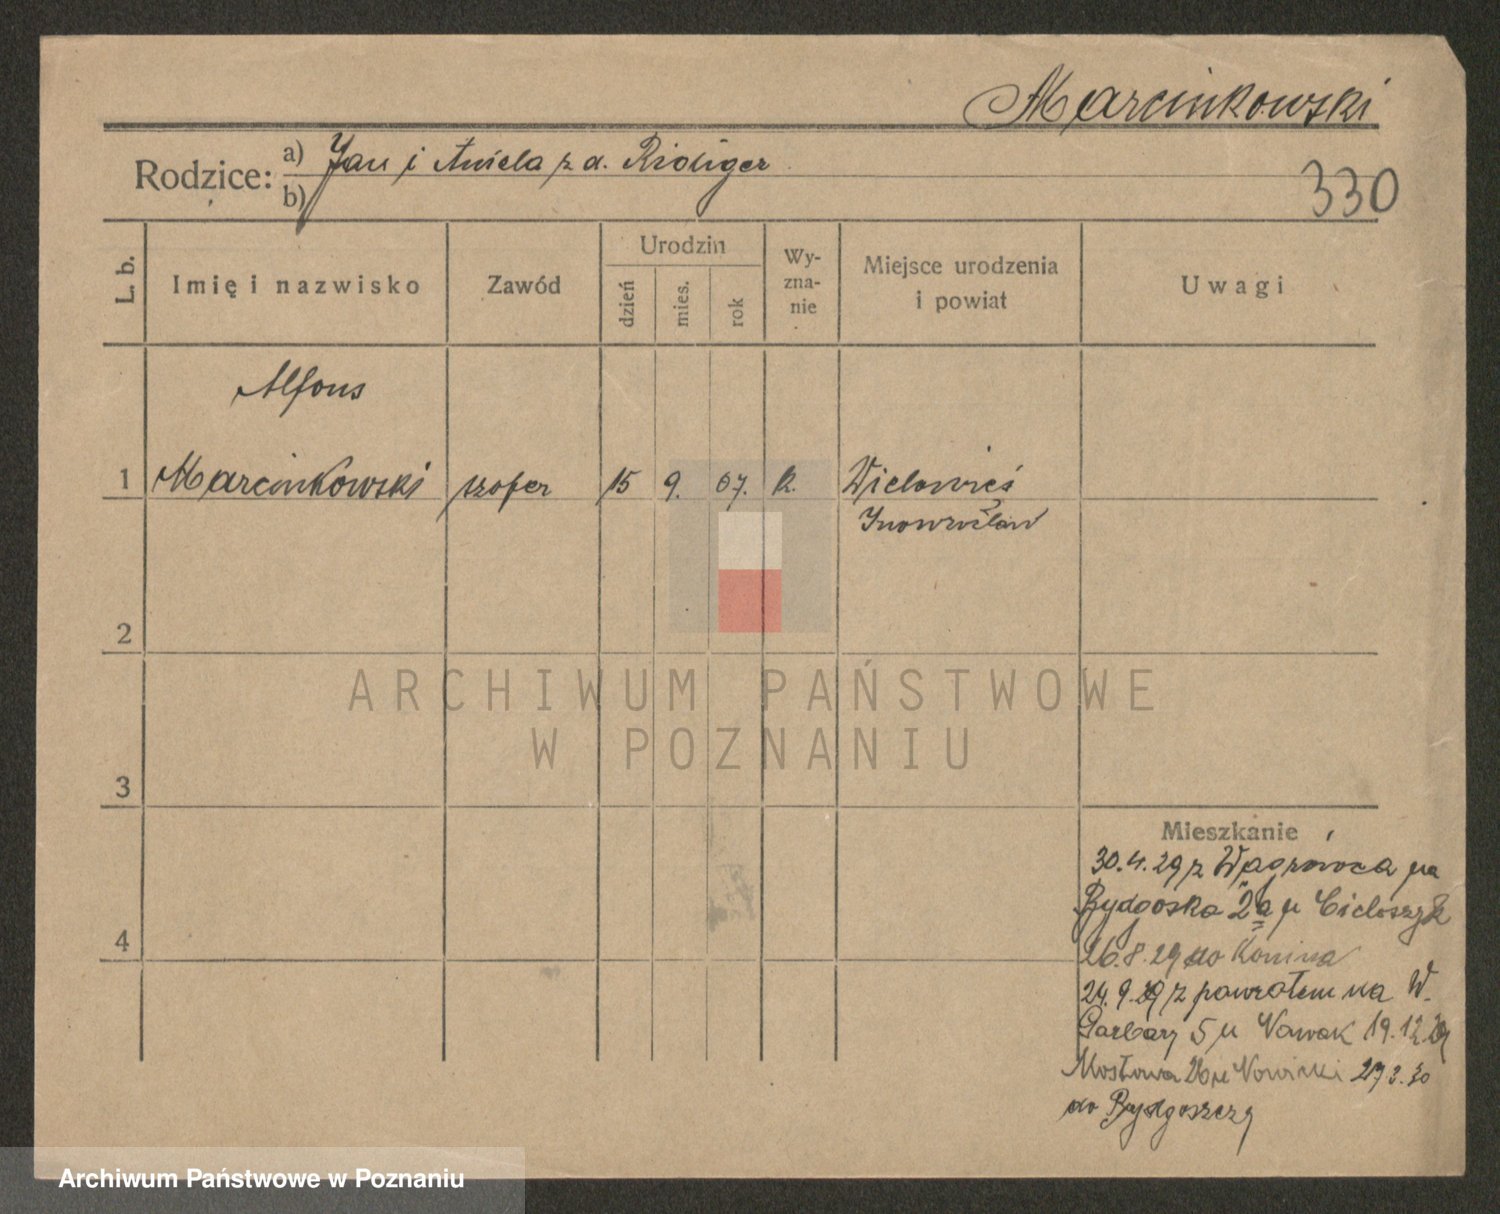 Marcinkowski
Rodzice: a) Jan i Aniela z d. Ridiger
b)
330
L. b.
Imię i nazwisko
Zawód
Urodzin
dzień
mies.
rok
Wy-
zna-
nie
Miejsce urodzenia
i powiat
Uwagi
Alfons
1 Marcinkowski szofer 15 9. 07. k. Wielowieś
Inowrocław
2
3
4
ARCHIWUM PAŃSTWOWE
W POZNANIU
Mieszkanie
30.4.29 z Wągrówca na
Bydgoska 2a u
26.8.29 do Konina
24.9.29 z powrotem na W.
Garbary 5 u Nowak 19.12.29
Mostowa 26 u Nowicki 27.3.30
do Bydgoszczy
Archiwum Państwowe w Poznaniu